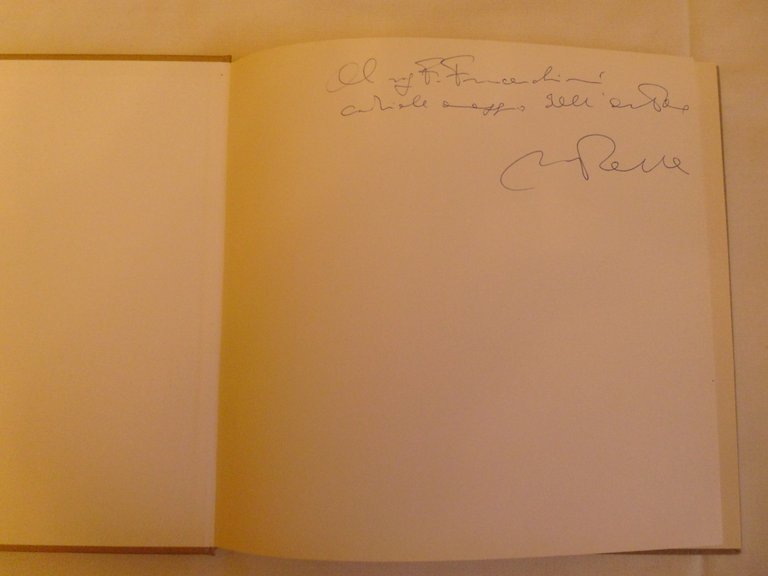 Al sig F. Franceschini
cordiale omaggio dell'autore